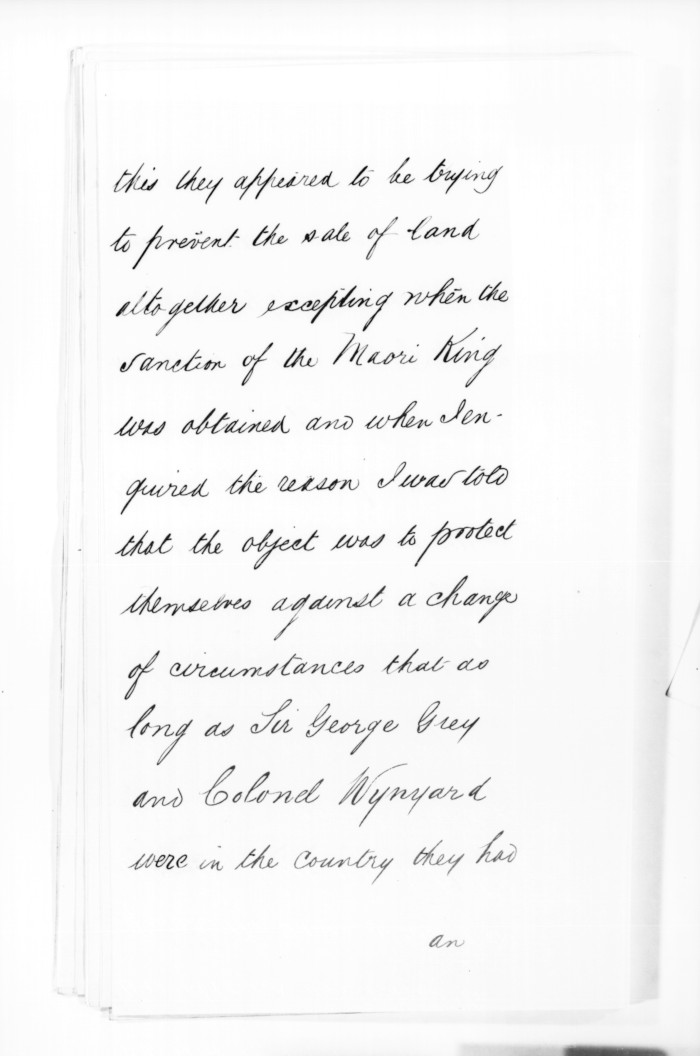 this they appeared to be trying
to prevent the sale of land
altogether excepting when the
sanction of the Maori King
was obtained and when I en-
quired the reason I was told
that the object was to protect
themselves against a change
of circumstances that as
long as Sir George Grey
and Colonel Wynyard
were in the country they had
an